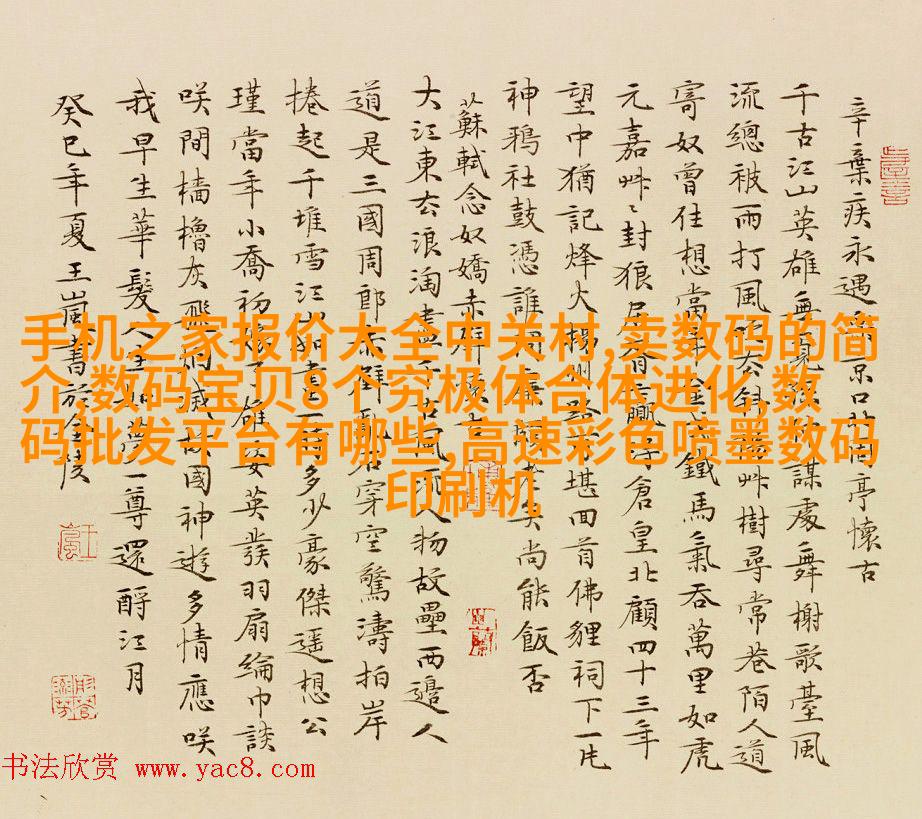 辛棄疾永遇樂京口北固亭懷古
千古江山英雄無覓孫仲謀處舞榭歌臺風
流總被雨打風吹去斜陽艸樹尋常巷陌人道
寄奴曾住想當年金戈鐵馬氣吞萬里如虎
元嘉艸〻封狼居胥贏得倉皇北顧四十三年
望中猶記烽火揚州路可堪回首佛貍祠下一片
神鴉社鼓憑誰問廉頗老矣尚能飯否
蘇軾念奴嬌赤壁懷古
大江東去浪淘盡千古風流人物故壘西邊人
道是三國周郎赤壁亂石穿空驚濤拍岸
捲起千堆雪江山如畫一時多少豪傑遥想公
瑾當年小喬初嫁了雄姿英發羽扇綸巾談
咲間檣櫓灰飛煙滅故國神遊多情應咲
我早生華髮人生如夢一尊還酹江月
癸巳年夏王嵐書於金陵
手机之家报价大全中关村,卖数码的简
介,数码宝贝8个究极体合体进化,数
码批发平台有哪些,高速彩色喷墨数码
印刷机
书法欣赏 www.yac8.com